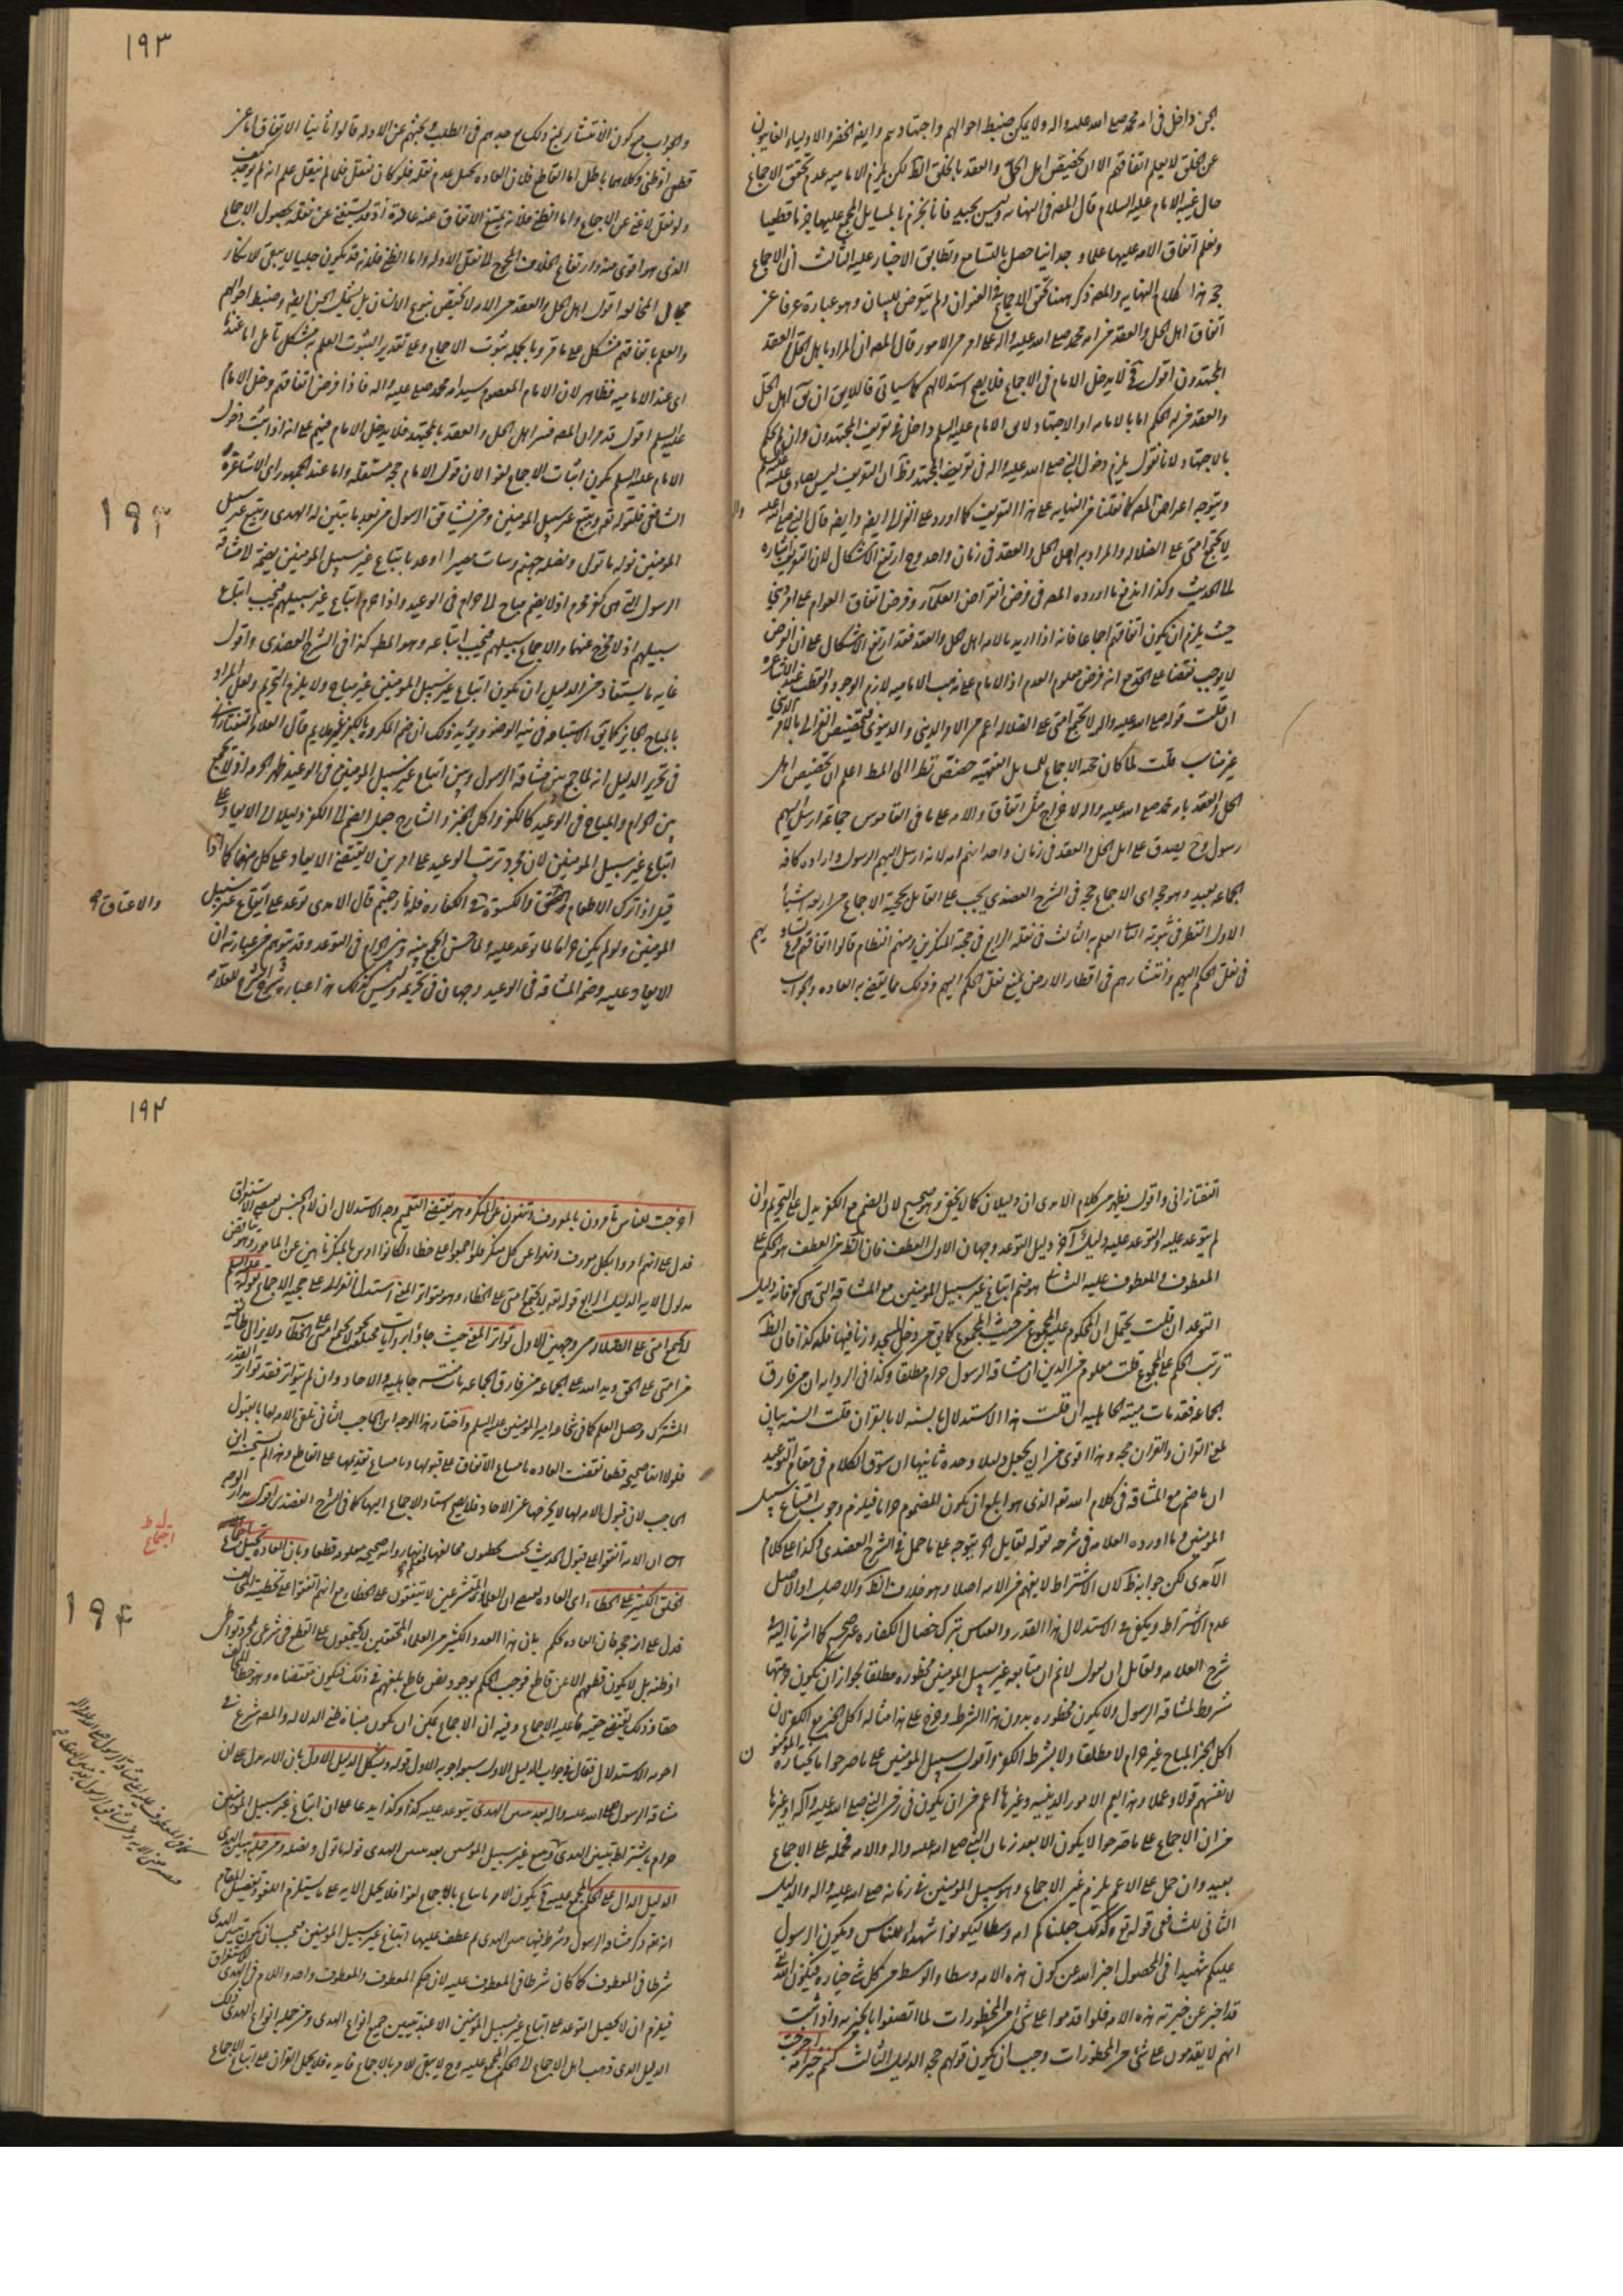 الجن داخل فى امه محمد صلى الله عليه واله ولا يمكن ضبط احوالهم واجتهادهم وايضا الخضر والاولياء الغايبون
عن الخلق لا يعلم اتفاقهم الا ان يخصص اهل الحل والعقد بالخلق الظ لكن يلزم الاماميه عدم تحقق الاجماع
حال غيبه الامام عليه السلام قال المصه فى النهايه وليس بجيد فانا نجزم بالمسايل المجمع عليها جزما قطعيا
ونعلم اتفاق الامه عليها علما وجدانيا حصل بالتسامع وتطابق الاخبار عليه الثالث ان الاجماع
حجه هذا كلام النهايه والمصه ذكر ههنا تحقق الاجماع فى العنوان ولم يتعرض للبيان وهو عبارة عرفا عن
اتفاق اهل الحل والعقد من امه محمد صلى الله عليه واله على امر من الامور قال المصه ان المراد باهل الحل والعقد
المجتهدون اقول فح لا يدخل الامام فى الاجماع فلا يصح استدلالهم كما سياتى فاللايق ان يق اهل الحل
والعقد من له الحكم اما بالامامه او الاجتهاد لا يق الامام عليه السلم داخل فى تعريف المجتهدون وان لم يحكم
بالاجتهاد لانا نقول يلزم دخول النبى صلى الله عليه واله فى تعريف المجتهد وظ ان التعريف ليس بصادق عليه
ويتوجه اعتراض المصه كما نقلنا من النهايه على هذا التعريف كما اورد على الغزالى ايضا وايضا قال النبى صلى الله عليه واله
لا يجتمع امتى على الضلاله والمراد به اهل الحل والعقد فى زمان واحد وح ارتفع الاشكال لان التعريف اشاره
لما الحديث وكذا اندفع ما اورده المصه فى فرض انقراض العلماء وفرض اتفاق العوام على امر دينى
حيث يلزم ان يكون اتفاقهم اجماعا فانه اذا اريد بالامه اهل الحل والعقد فقد ارتفع الاشكال على ان الفرض
لا يوجب نقضا على الحد مع انه فرض معلوم العدم اذ الامام على مذهب الاماميه لازم الوجود والقطب عند الاشاعره
ان قلت قوله صلى الله عليه واله لا يجتمع امتى على الضلاله اعم من الامر الدينى والدنيوى فتخصيص الغزالى بالامر الدينى
غير مناسب قلت لما كان حجه الاجماع للمسايل الفقهيه خصص نظرا الى المط اعلم ان تخصيص اهل
الحل والعقد بامه محمد صلى الله عليه واله لاخراج مثل اتفاق والامه على ما فى القاموس جماعة ارسل اليهم
رسول وح يصدق على اهل الحل والعقد فى زمان واحد انهم امه لانه ارسل اليهم الرسول واراده كافه
الجماعه بعيد وهو حجه اى الاجماع حجه فى الشرح العضدى يجب على القايل بحجية الاجماع
الاول النظر فى ثبوته الثانى العلم به الثالث فى نقله الرابع فى حجته المنكرين ومنهم النظام قالوا اتفاقهم فرع تساويهم
فى نقل الحكم اليهم وانتشارهم فى اقطار الارض يمنع نقل الحكم اليهم وذلك مما يقتضى به العاده والجواب
١٩٣
والجواب منع كون الانتشار يمنع ذلك مع جدهم فى الطلب وبحثهم عن الادله قالوا ثانيا الاتفاق اما عن
قطعى او ظنى وكلاهما باطل اما القاطع فلان العاده تحيل عدم نقله فلو كان لنقل فلما لم ينقل علم انه لم يوجد
ولو نقل لاغنى عن الاجماع واما الظنى فلانه يمتنع الاتفاق عنه عادة اذ قد يستغنى عن نقله بحصول الاجماع
الذى هو اقوى منه وارتفاع الخلاف المحوج لا نقل الادله واما الظنى فلانه قد يكون جليا لا يبقى للانكار
مجال المخالفه اقول اهل الحل والعقد من الامه لا يختص بنوع الانسان بل يشمل الجن ايضا وضبط احوالهم
والعلم باتفاقهم مشكل على ما مر وبالجمله ثبوت الاجماع وعلى تقدير الثبوت العلم به مشكل تامل اما عندنا
اى عند الاماميه فظاهر لان الامام المعصوم سيد امه محمد صلى عليه واله فاذا فرض اتفاقهم دخل الامام
عليه السلم اقول قد مر ان المصه فسر اهل الحل والعقد بالمجتهد فلا يدخل الامام فيهم على انه اذا ثبت دخول
الامام عليه السلم يكون اثبات الاجماع لغوا لان قول الامام حجه مستقله واما عند الجمهور اى الاشاعرة
الشافعى فلقوله تعه ويتبع غير سبيل المومنين ومن يشاقق الرسول من بعد ما تبين له الهدى ويتبع غير سبيل
المومنين نوله ما تولى ونصله جهنم وسات مصيرا اوعد باتباع غير سبيل المومنين بضمه لا مشاقه
الرسول التى هى كفر فحرم اذ لا يضم مباح الى حرام فى الوعيد واذا حرم اتباع غير سبيلهم فيجب اتباع
سبيلهم اذ لا مخرج عنهما والاجماع سبيلهم فيجب اتباعه وهو المط كذا فى الشرح العضدى واقول
غايه ما يستفاد من الدليل ان يكون اتباع غير سبيل المومنين غير مباح ولا يلزم التحريم ولعل المراد
بالمباح الجايز
فى تحرير الدليل انه لما جمع بين مشاقه الرسول وبين اتباع غير سبيل المومنين فى الوعيد ظهر الحرمه اذ لا يجمع
بين الحرام والمباح فى الوعيد كالكفر واكل الخبز والشارح جعل الضم الى الكفر دليلا الى الايعاد على
اتباع غير سبيل المومنين لان مجرد ترتب الوعيد على امرين لا يقتضى الايعاد على كل منهما كما اذا
قيل اذا ترك الاطعام والكسوة فى الكفاره فله نار جهنم قال الامدى توعد على اتباع غير سبيل
المومنين ولو لم يكن حراما لما توعد عليه ولما حسن الجمع بينه وبين الحرام فى التوعد وقد يتوهم من عبارته ان
الايعاد عليه وضم المشاقه فى الوعيد وجهان فى تحريمه وليس كذلك هذا عباره شرح الشرح للعلامه
والاعتاق
١٩٣
التفتازانى واقول يظهر من كلام الامدى ان دليلان كما لا يخفى وهو صحيح لان الضم مع الكفر يدل على التحريم وان
لم يتوعد عليه والتوعد عليه دليل آخر دليل التوعد وجهان الاول العطف فان الظ من العطف هو الحكم على
المعطوف والمعطوف عليه الثانى هو ضم اتباع غير سبيل المومنين مع المشاقه التى هى كفر فانه دليل
التوعد ان قلت يحتمل ان المحكوم عليه المجموع من حيث المجموع كما يق من دخل المسجد وزنا فيها فله كذا فان الظ
ترتب الحكم على المجموع قلت معلوم من الدين ان مشاقه الرسول حرام مطلقا وكذا فى الروايه ان من فارق
الجماعه فقد مات ميتة الجاهليه ان قلت هذا الاستدلال بالسنه لا بالقران قلت السنه بيان
لمعنى القران والقران حجه وهذا اقوى من ان يجعل دليلا وحده ثانيها ان سوق الكلام فى مقام التوعيد
ان ما ضم مع المشاقه فى كلام الله تعه الذى هو ابلغ ان يكون المضموم حراما فيلزم وجوب اتباع سبيل
المومنين وما اورده العلامه فى شرحه بقوله لقايل الخ يتوجه على ما حمل فى الشرح العضدى وكذا على كلام
الآمدى لكن جوابه ظ لان الاشتراط لا يفهم من الامه اصلا وهو خلاف الظ والاصل
عدم الاشتراط ويكفى فى الاستدلال هذا القدر والقياس بترك خصال الكفاره غير صحيح كما اشرنا اليه
شرح العلامه ولقايل ان يقول لا نم ان متابعه غير سبيل المومنين محظوره مطلقا لجواز ان يكون حرمتها
شرط لمشاقه الرسول ولا يكون محظوره بدون هذا الشرط وخرج على هذا مثاله اكل الخبز مع الكفر لان
اكل الخبز المباح غير حرام لا مطلقا ولا بشرط الكفر واقول سبيل المومنين على ما صرحوا ما يختاره المومنون
لانفسهم قولا وعملا وهذا يعم الامور الدينيه وغيرها اعم من ان يكون فى زمن النبى صلى الله عليه وآله او غيرها
من ان الاجماع على ما صرحوا لا يكون الا بعد زمان النبى صلى الله عليه واله والامه فحمله على الاجماع
بعيد وان حمل على الاعم يلزم غير الاجماع وهو سبيل المومنين فى زمانه صلى الله عليه واله والدليل
الثانى للشافعى قوله تعه وكذلك جعلناكم امه وسطا ليكونوا شهداء للناس ويكون الرسول
عليكم شهيدا فى المحصول اخبر الله عن كون هذه الامه وسطا والوسط من كل شئ خياره فيكون الله تعه
قد اخبر عن خيريه هذه الامه فلو اقدموا على شئ من المحظورات لما اتصفوا بالخيريه واذا ثبت
انهم لا يقدمون على شئ من المحظورات وجب ان يكون قولهم حجه الدليل الثالث كنتم خير امة اخرجت
١٩٤
اخرجت للناس تامرون بالمعروف وتنهون عن المنكر وهو يقتضى التعميم وجه الاستدلال ان لام الجنس يقتضى الاستغراق
فدل على انهم امروا بكل معروف ونهوا عن كل منكر فلو اجمعوا على خطاء لكانوا امرين بالمنكر ناهين عن المعروف وهو يناقض
مدلول الايه الدليل الرابع قوله تعه لا يجتمع امتى على الخطاء وهو متواتر المعنى استدل الغزالى على حجيه الاجماع بقوله عليه السلم
لا يجتمع امتى على الضلاله من وجهين الاول تواتر المعنى حيث جاء بروايات مختلفه نحو لا يجتمع امتى على الخطاء ولا يزال طائفه
من امتى على الحق ويد الله على الجماعه من فارق الجماعه مات ميتته جاهليه والاحاد وان لم يتواتر فقد تواتر القدر
المشترك وحصل العلم كما فى شجاعه امير المومنين عليه السلم واختار هذا الوجه ابن الحاجب الثانى تلقى الامه لها بالقبول
فلولا انها صحيحه قطعا لقضت العاده بامتناع الاتفاق على قبولها وبامتناع تقديمها على القاطع وهذا لم يستحسنه ابن
الحاجب لان قبول الامه لها لا يخرجها عن الاحاد فلا يصح استناد الاجماع اليها كما فى الشرح العضدى اقول
ان الامه اتفقوا على قبول الحديث بحيث يخطئون مخالفها انها روايه صحيحه معلومه قطعا وبان العاده تحيل اجتماع
الخلق الكثير على الخطاء اى العاده يقتضى ان العلماء المتشرعين لا يتفقون على الخطاء مع انهم اتفقوا على تخطئة المخالف
فدل على انه حجه فان العاده تحكم بان هذا العدد الكثير من العلماء المحققين لا يجتمعون على القطع فى شرعى بمجرد تواطى
او ظنه بل لا يكون قطعهم الا عن قاطع فوجب الحكم بوجود نص قاطع بلغهم فى ذلك فيكون مقتضاه وهو خطاء المخالف
حقا وذلك يقتضى حقيه ما عليه الاجماع وفيه ان الاجماع يمكن ان يكون مبناه ظنى الدلاله والمصه شرع فى
اجوبه الاستدلال فقال فى جواب الدليل الاول سبع اجوبه الاول قوله ويشكل الدليل الاول بان الايه تدل على ان
مشاقه الرسول صلى الله عليه واله بعد تبين الهدى يتوعد عليه كذا وكذا يدعا على ان اتباع غير سبيل المومنين
حرام بشرط تبين الهدى ويتبع غير سبيل المومنين بعد تبين الهدى نوله ما تولى ونصله ومن جمله تبين الهدى
الدليل الدال على الحكم المجمع عليه فح يكون الامر باتباع بالاجماع لغوا فلا يحمل الايه على ما يستلزم اللغو وتفصيل المقام
انه تعه ذكر مشاقه الرسول وشرط فيها تبين الهدى ثم عطف عليها اتباع غير سبيل المومنين فيجب ان يكون تبين الهدى
شرطا فى المعطوف كما كان شرطا فى المعطوف عليه لان حكم المعطوف والمعطوف واحد واللام فى الهدى للاستغراق
فيلزم ان لا يحصل التوعد على اتباع غير سبيل المومنين الا عند تبيين جميع انواع الهدى ومن جمله انواع الهدى ذلك
الدليل الذى ذهب اهل الاجماع الى الحكم المجمع عليه وح لا يبقى للامر بالاجماع فايده فلا يحمل القران على اتباع الاجماع
اجتماع
١٩٤